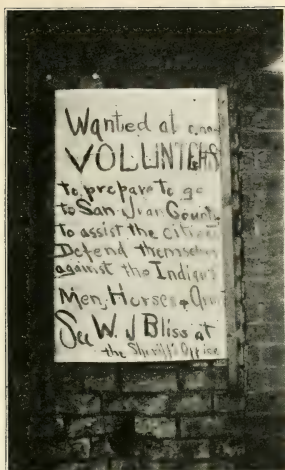 Wanted at once
VOLUNTEERS
to prepare to go
to San Juan County
to assist the citizens
Defend themselves
against the Indians
Men, Horses &
See W. J Bliss at
the Sheriff's Office